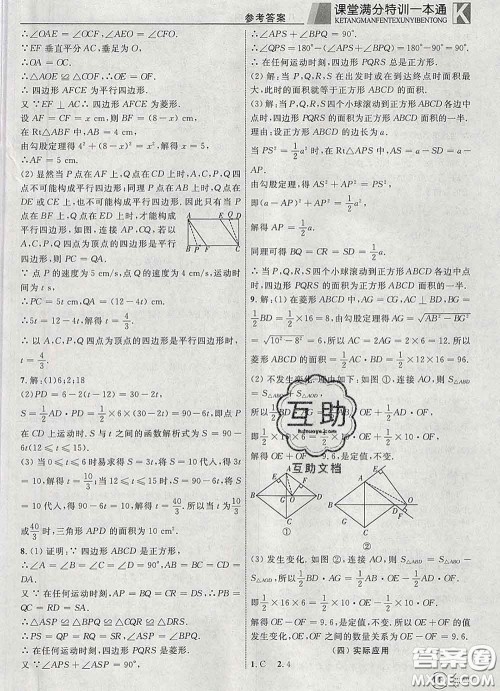 参考答案
课堂满分特训一本通
KETANGMANFENTEXUNYIBENTONG
∴∠OAE=∠OCF, ∠AEO=∠CFO.
∵EF 垂直平分 AC, 垂足为 O,
∴OA=OC.
∴△AOE≌△COF, ∴OE=OF.
∴四边形 AFCE 为平行四边形.
又∵EF⊥AC, ∴四边形 AFCE 为菱形.
设 AF=CF=x cm, 则 BF=(8-x) cm,
在 Rt△ABF 中, AB=4 cm,
由勾股定理得 4²+(8-x)²=x², 解得 x=5,
∴AF=5 cm.
(2) 显然当 P 点在 AF 上, Q 点在 CD 上时, A,C,P,Q 四
点不可能构成平行四边形; 同理 P 点在 AB 上时, Q 点在
DE 或 CE 上, 也不可能构成平行四边形. 因此只有当 P
点在 BF 上, Q 点在 ED 上时, 才能构成
平行四边形, 如图, 连接 AP, CQ, 若以 A,
C,P,Q 四点为顶点的四边形是平行四边
形, 则 PC=QA,
∵点 P 的速度为 5 cm/s, 点 Q 的速度为 4 cm/s, 运动时
间为 t s,
∴PC=5t cm, QA=(12-4t) cm.
∴5t=12-4t, 解得 t=4/3.
∴以 A,C,P,Q 四点为顶点的四边形是平行四边形时,
t=4/3.
7. 解: (1)6;2;18
(2)PD=6-2(t-12)=30-2t,
S=1/2AD·PD=1/2×6×(30-2t)=90-6t, 即当点
P 在 CD 上运动时, S 与 t 之间的函数解析式为 S=90-
6t(12≤t≤15).
(3) 当 0≤t≤6 时易求得 S=3t, 将 S=10 代入, 得 3t=
10, 解得 t=10/3; 当 12≤t≤15 时, S=90-6t, 将 S=10
代入, 得 90-6t=10, 解得 t=40/3. 所以当 t 为 10/3
或 40/3 时, 三角形 APD 的面积为 10 cm².
8. (1) 证明: ∵四边形 ABCD 是正方形,
∴∠A=∠B=∠C=∠D=90°, AB=BC=CD=DA.
又∵在任何运动时刻, AP=BQ=CR=DS,
∴PB=QC=RD=SA.
∴△ASP≌△BPQ≌△CQR≌△DRS.
∴PS=QP=RQ=SR, ∠ASP=∠BPQ.
∴在任何运动时刻, 四边形 PQRS 总是菱形.
又∵∠APS+∠ASP=90°,
∴∠APS+∠BPQ=90°.
∴∠QPS=180°-(∠APS+∠BPQ)=180°-90°=90°.
∴在任何运动时刻, 四边形 PQRS 总是正方形.
(2) 解: 当 P,Q,R,S 在出发时或在到达终点时面积最
大, 此时的面积就等于原正方形 ABCD 的面积.
(3) 解: 当 P,Q,R,S 四个小球滚动到正方形 ABCD 各边中
点时, 四边形 PQRS 的面积是正方形 ABCD 面积的一半.
理由: 设正方形 ABCD 的边长为 a.
当 PS²=1/2a² 时, 在 Rt△APS 中, AS=a-SD=a-
AP.
由勾股定理, 得 AS²+AP²=PS²,
即 (a-AP)²+AP²=1/2a²,
解得 AP=1/2a.
同理可得 BQ=CR=SD=1/2a.
∴当 P,Q,R,S 四个小球滚动到正方形 ABCD 各边中点
时, 四边形 PQRS 的面积是正方形 ABCD 面积的一半.
9. 解: (1) 在菱形 ABCD 中, AG=CG, AC⊥BD, BG=
1/2BD=1/2×16=8, 由勾股定理得 AG=√(AB²-BG²)
=√(10²-8²)=6, 所以 AC=2AG=2×6=12. 所以
菱形 ABCD 的面积=1/2AC·BD=1/2×12×16=96.
(2) 不发生变化. 理由如下: 如图①, 连接 AO, 则 S△ABD
=S△ABO+S△AOD.
所以 1/2BD·AG=1/2AB·OE+1/2AD·OF,
即 1/2×16×6=1/2×10·OE+1/2×10·OF.
解得 OE+OF=9.6, 是定值, 不变.
①
②
(3) 发生变化. 如图②, 连接 AO, 则 S△ABD=S△ABO-
S△AOD. 所以 1/2BD·AG=1/2AB·OE-1/2AD·OF,
即 1/2×16×6=1/2×10·OE-1/2×10·OF.
解得 OE-OF=9.6, 是定值, 不变. 所以 OE+OF 的值
发生变化, OE,OF 之间的数量关系为 OE-OF=9.6.
(四) 实际应用
1. C  2. 4
互助
互助文档